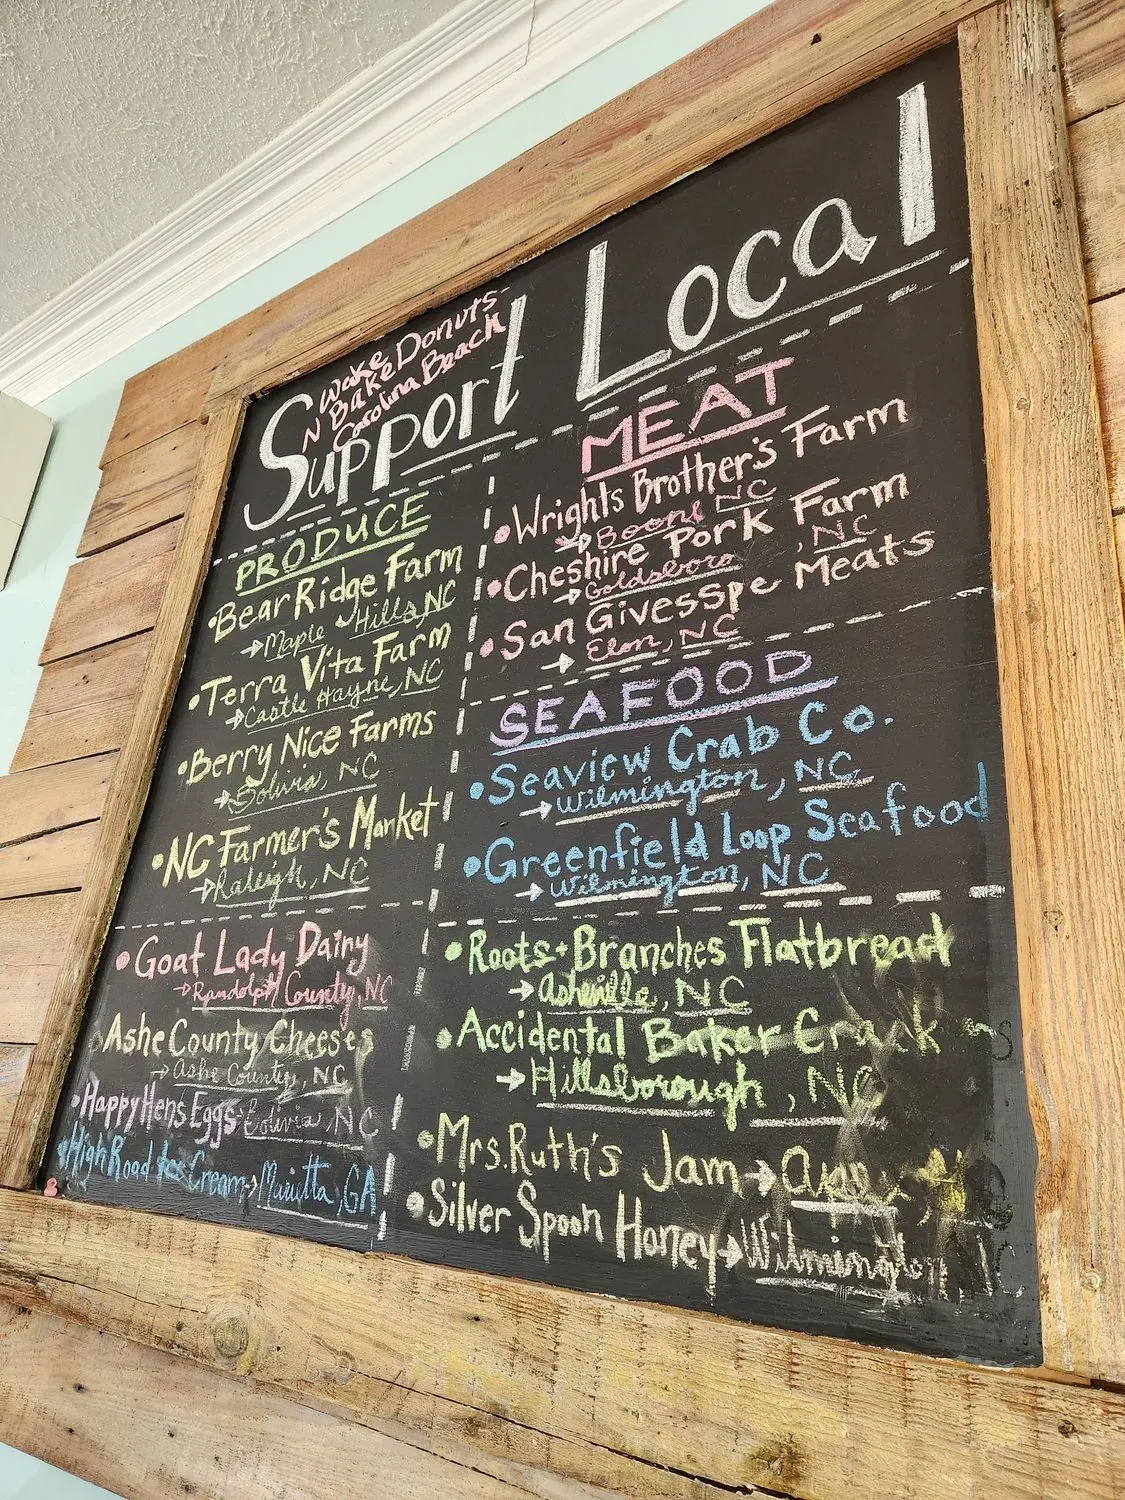 Support Local
Wake
N Bake Donuts-
Carolina Beach
PRODUCE
•Bear Ridge Farm
→Maple Hills, NC
•Terra Vita Farm
→Castle Hayne, NC
•Berry Nice Farms
→Bolivia, NC
•NC Farmer's Market
→Raleigh, NC
•Goat Lady Dairy
→Randolph County, NC
Ashe County Cheeses
→Ashe County, NC
•Happy Hens Eggs Bolivia, NC
•High Road Ice Cream→Marietta, GA
MEAT
•Wrights Brother's Farm
→Boone NC
•Cheshire Pork Farm
→Goldsboro, NC
•San Givesspe Meats
→Elon, NC
SEAFOOD
•Seaview Crab Co.
→Wilmington, NC
•Greenfield Loop Seafood
→Wilmington, NC
•Roots+Branches Flatbread
→Asheville, NC
•Accidental Baker
→Hillsborough, NC
•Mrs. Ruth's Jam→
•Silver Spoon Honey→Wilmington